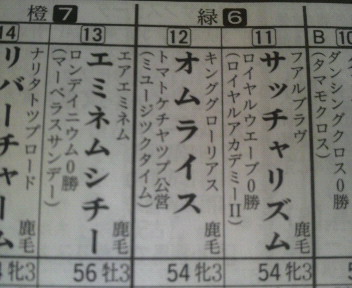 緑 6
B 10
(タマモクロス)
11
ファルブラヴ
サッチャリズム 鹿毛
ロイヤルウエーブ0勝
(ロイヤルアカデミーII)
54 牝3
12
キンググローリアス
オムライス 鹿毛
トマトケチヤツプ公営
(ミユージツクタイム)
54 牝3
橙 7
13
エアエミネム
エミネムシチー 鹿毛
ロンデイニウム0勝
(マーベラスサンデー)
56 牡3
14
ナリタトツプロード
リバーチャーム
牝3